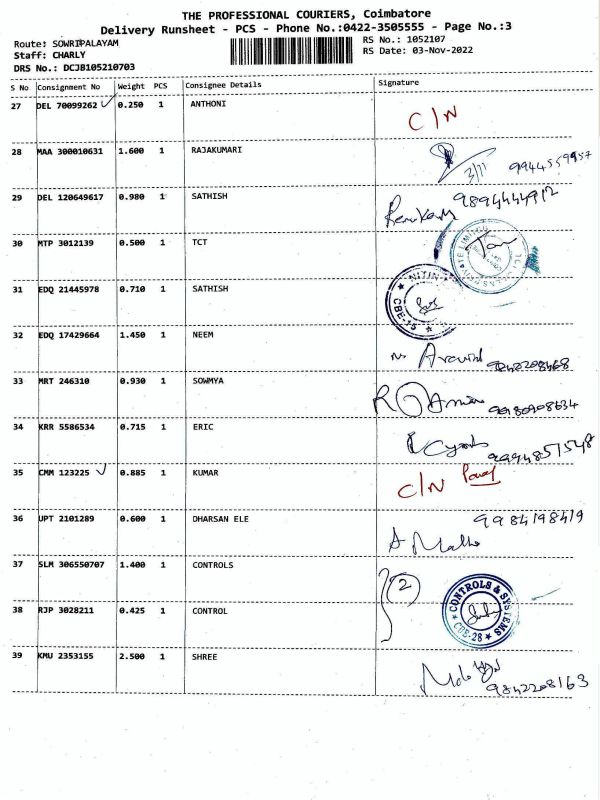 THE PROFESSIONAL COURIERS, Coimbatore
Delivery Runsheet - PCS - Phone No.:0422-3505555 - Page No.:3
Route: SOWRIPALAYAM
RS No.: 1052107
Staff: CHARLY
RS Date: 03-Nov-2022
DRS No.: DCJB105210703
S No Consignment No Weight PCS Consignee Details Signature
27 DEL 70099262 0.250 1 ANTHONI C/N
28 MAA 300010631 1.600 1 RAJAKUMARI 3/11 9944559957
29 DEL 120649617 0.980 1 SATHISH 9894444912
30 MTP 3012139 0.500 1 TCT
31 EDQ 21445978 0.710 1 SATHISH NITIN CBE-15
32 EDQ 17429664 1.450 1 NEEM Aravind
33 MRT 246310 0.930 1 SOWMYA
34 KRR 5586534 0.715 1 ERIC
35 CMM 123225 0.885 1 KUMAR C/N
36 UPT 2101289 0.600 1 DHARSAN ELE 9984198419
37 SLM 306550707 1.400 1 CONTROLS 2
CONTROLS & SYSTEMS CBE-28
38 RJP 3028211 0.425 1 CONTROL
39 KMU 2353155 2.500 1 SHREE 9842208163